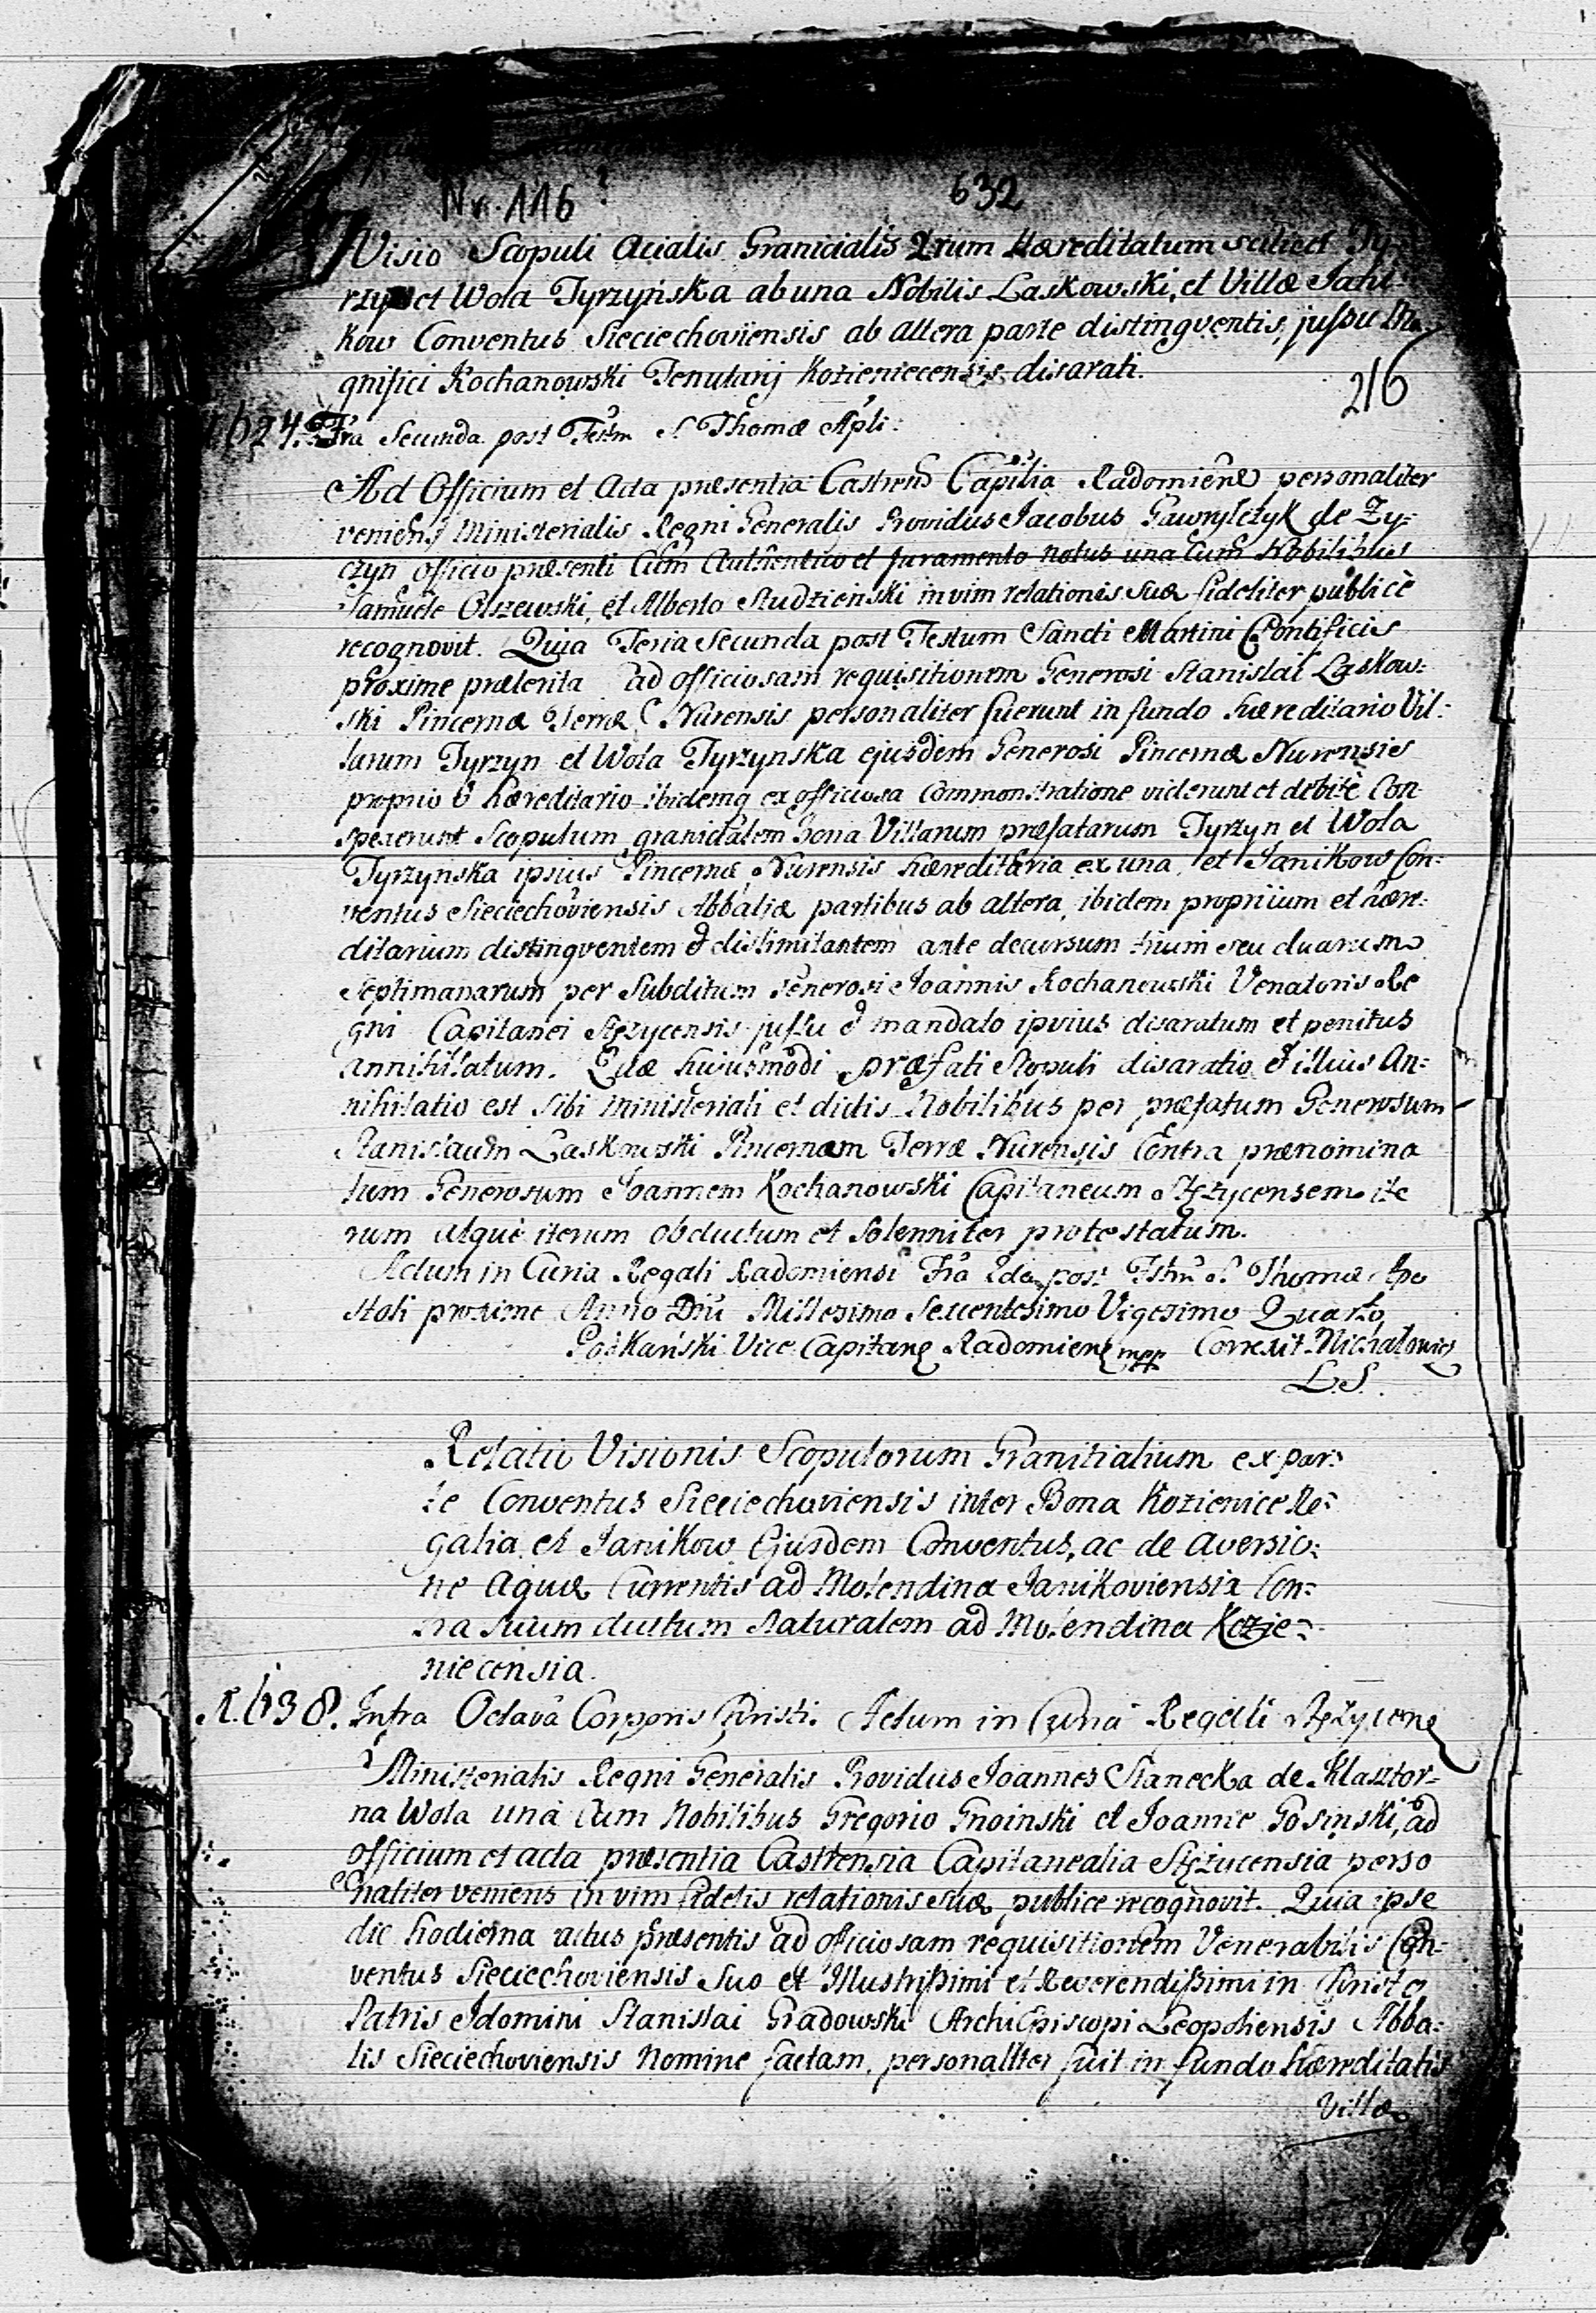 Nr. 116
632
Visio Scopuli Acialis Granicialis 2rum Hæreditatum scilicet Ty-
rzyn et Wola Tyrzyńska ab una Nobilis Laskowski, et Villæ Jani-
kow Conventus Sieciechoviensis ab altera parte distinqventis, jussu Ma-
gnifici Kochanowski Tenutarij Kozieniecensis disarati.
216
1624. Fra Secunda post Festm S. Thomæ Apli:
Ad Officium et Acta præsentia Castren Capitlia Radomiene personaliter
veniens Ministerialis Regni Generalis Providus Jacobus Gawrylczyk de Zy-
czyn officio præsenti Cum Authentico et juramento notus una Cum Nobilibus
Samuele Olszewski, et Alberto Studzienski in vim relationis suæ fideliter publicè
recognovit. Quia Feria Secunda post Festum Sancti Martini Pontificis
proxime præterita ad officiosam requisitionem Generosi Stanislai Laskow-
ski Pincernæ Terræ Nurensis personaliter fuerunt in fundo hæreditario Vil-
larum Tyrzyn et Wola Tyrzynska ejusdem Generosi Pincernæ Nurensis
proprio & hæreditario ibidemq ex officiosa Commonstratione viderunt et debitè Con-
spexerunt Scopulum granicialem bona Villarum præfatarum Tyrzyn et Wola
Tyrzynska ipsius Pincernæ Nurensis hæreditaria ex una, et Janikow Con-
ventus Sieciechoviensis Abbatiæ partibus ab altera, ibidem proprium et hære-
ditarium distinqventem & dislimitantem ante decursum trium seu duarum
Septimanarum per Subditum Generosi Joannis Kochanowski Venatoris Re
gni Capitanei Stężycensis jussu & mandato ipsius disaratum et penitus
annihilatum. Quæ hujusmodi præfati Scopuli disaratio & illius An-
nihilatio est sibi Ministeriali et dictis Nobilibus per præfatum Generosum
Stanislaum Laskowski Pincernam Terræ Nurensis Contra prænomina
tum Generosum Joannem Kochanowski Capitaneum Stężycensem ite
rum atque iterum obductum et Solenniter protestatum.
Actum in Curia Regali Radomiensi Fra 2da post Fstm S. Thomæ Apo
stoli proxime Anno Dni Millesimo Sexcentesimo Vigesimo Quarto
Vice Capitane Radomien mpp Correxit Michalowicz
L.S.
Relatio Visionis Scopulorum Granitialium ex par-
te Conventus Sieciechoviensis inter Bona Kozienice Re-
galia et Janikow Ejusdem Conventus, ac de aversio-
ne Aquæ Currentis ad Molendina Janikoviensia Con-
tra suum ductum Naturalem ad Molendina Kozie-
niecensia.
1638. Infra Octavã Corporis Christi. Actum in Curia Regali Stężycene
Ministerialis Regni Generalis Providus Joannes Stanecka de Klasztor-
na Wola unà Cum Nobilibus Gregorio Gnoinski et Joanne Gosinski, ad
officium et acta præsentia Castrensia Capitanealia Stężycensia perso
naliter veniens in vim fidelis relationis suæ, publice recognovit. Quia ipse
die hodierna actus præsentis ad officiosam requisitionem Venerabilis Con-
ventus Sieciechoviensis Suo et Illustrissimi et Reverendissimi in Christo
Patris Domini Stanislai Gradowski ArchiEpiscopi Leopoliensis Abba-
tis Sieciechoviensis Nomine factam, personaliter fuit in fundo hæreditatis
Villæ